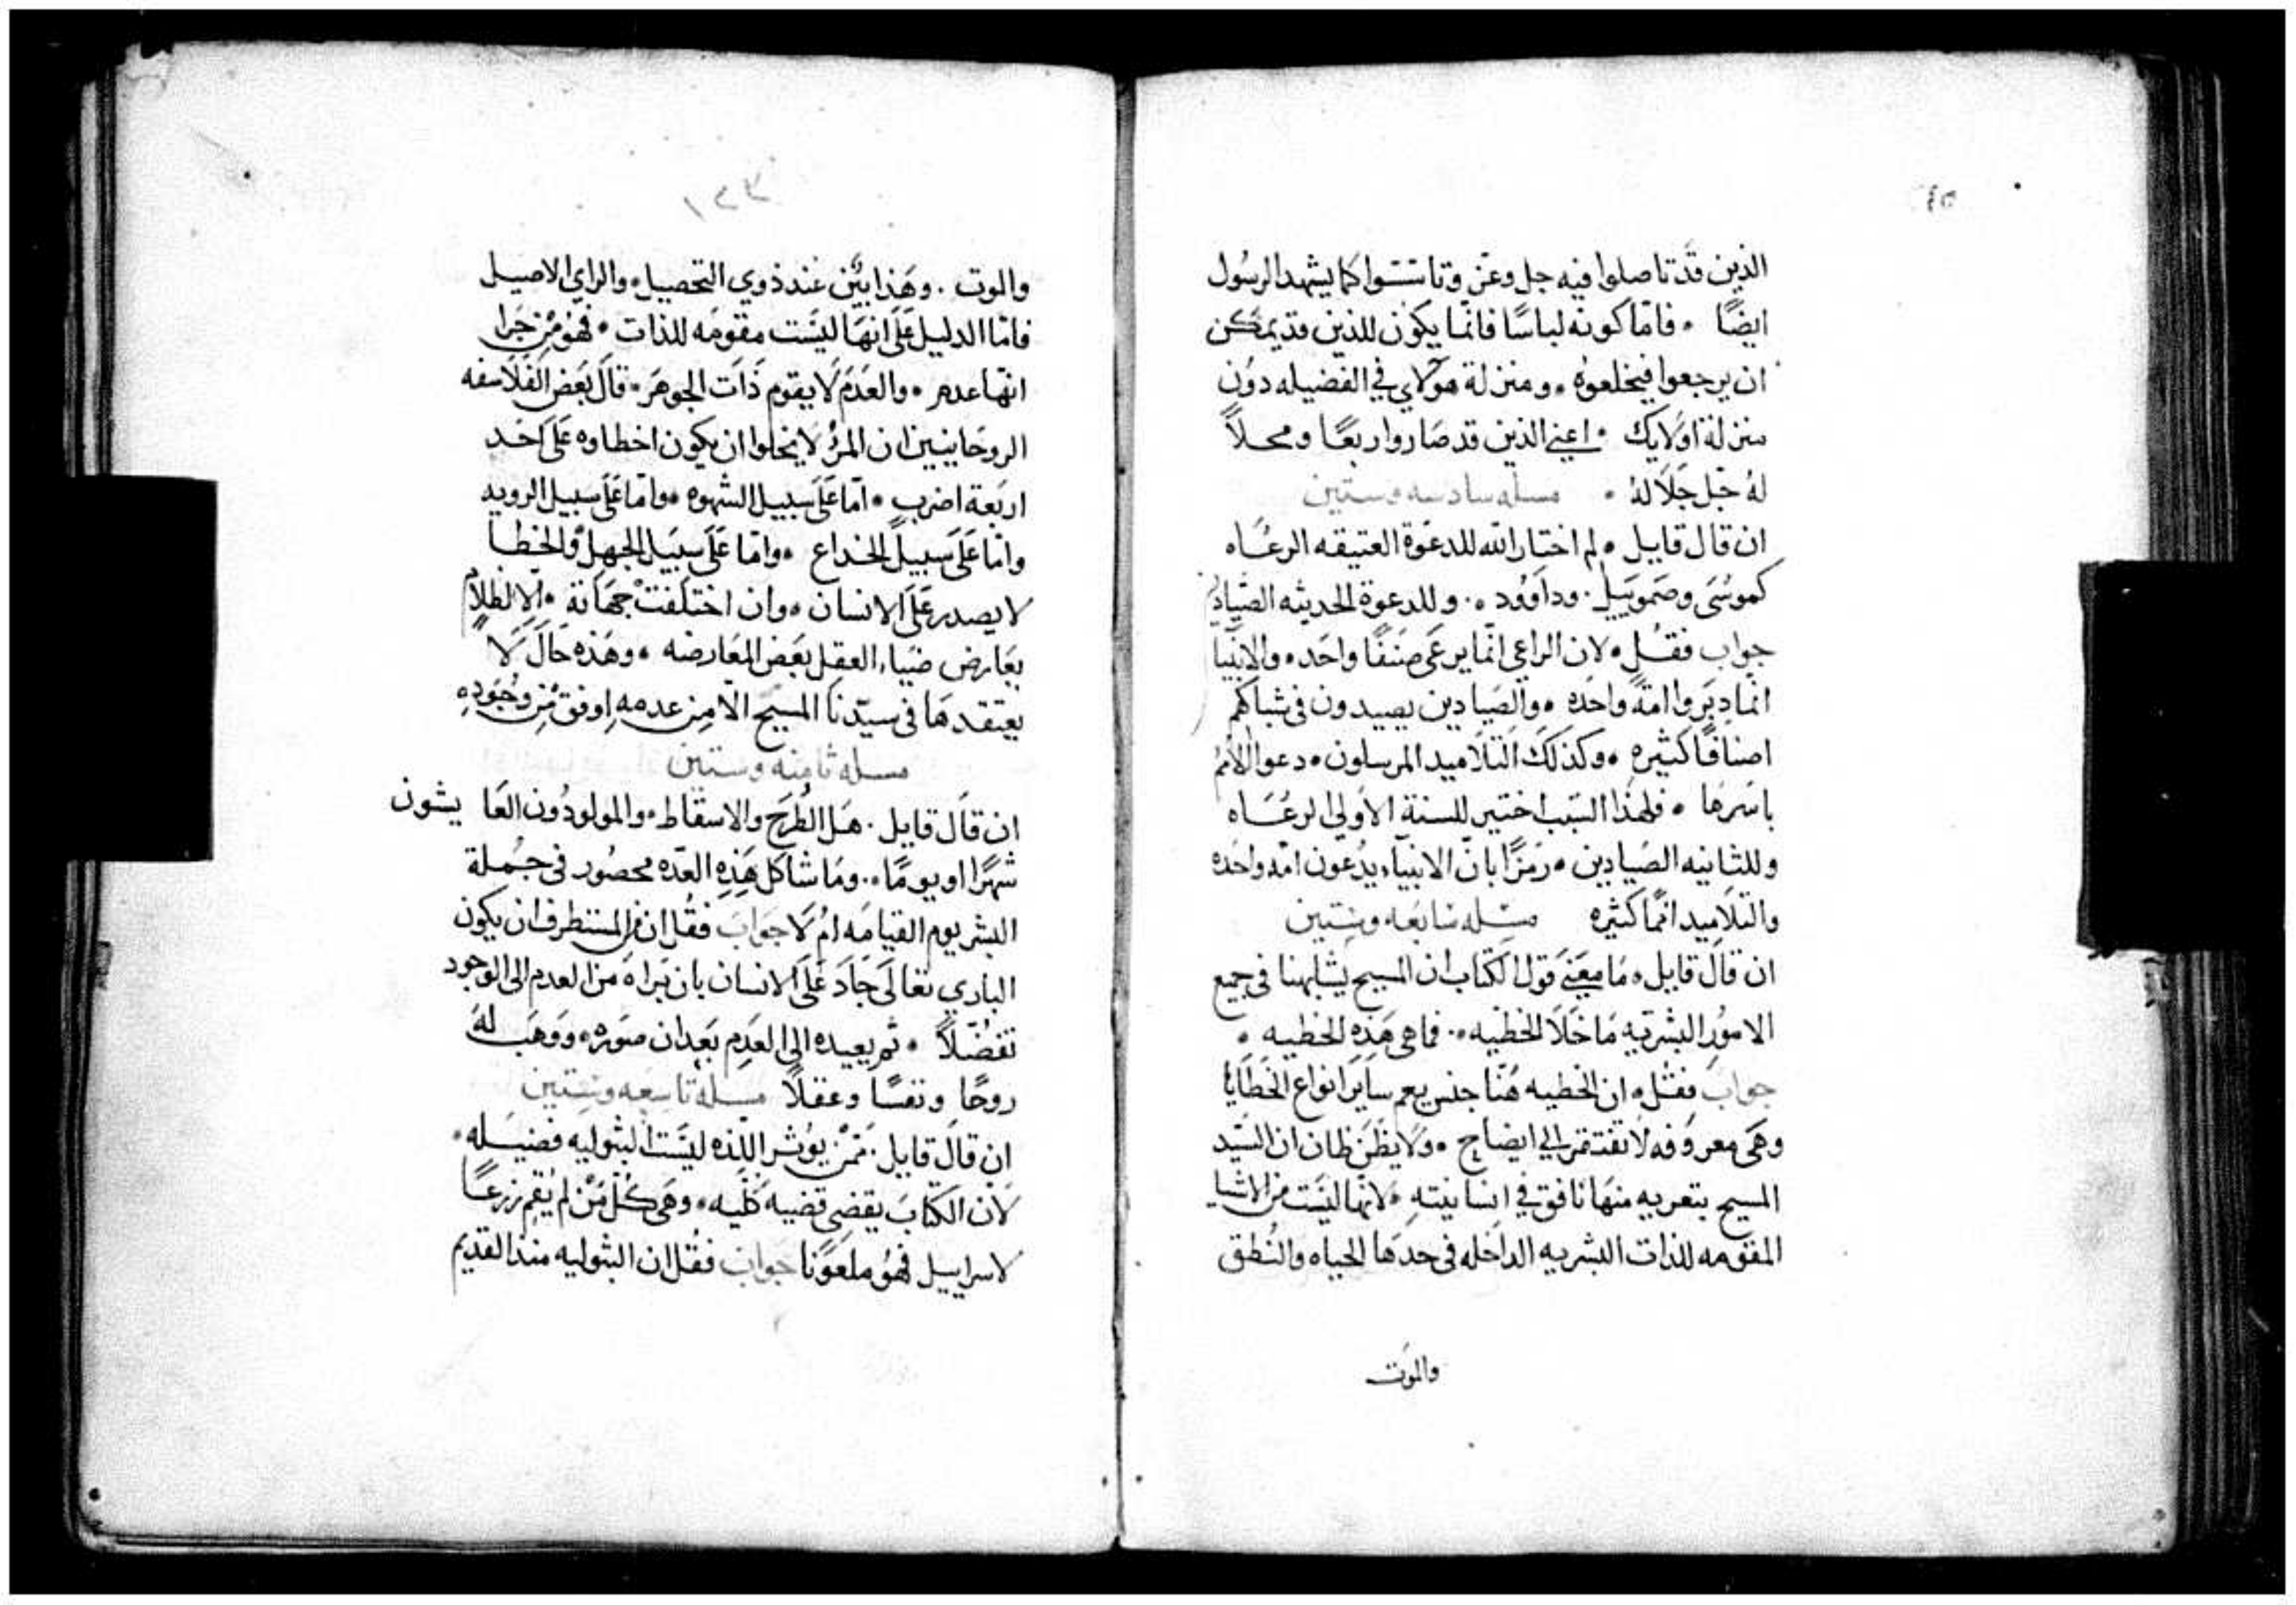 الذين قد تاصلوا فيه جل وعز وتاسسوا كما يشهد الرسول
ايضًا . فاما كونه لباسًا فانما يكون للذين قد يمكن
ان يرجعوا فيخلعوه . ومنزلة هولاي في الفضيله دون
منزلة اولايك . اعني الذين قد صاروا ربعًا ومحلاً
له جل جلاله . مسله سادسه وستين
ان قال قايل . لم اختار الله للدعوة العتيقه الرعاه
كموسى وصموييل . وداوود . وللدعوة الحديثه الصيادين
جواب فقل . لان الراعي انما يرعى صنفًا واحد . والانبيا
انما دبروا امة واحده . والصيادين يصيدون في شباكهم
اصنافًا كثيره . وكذلك التلاميد المرسلون . دعوا الامم
باسرها . فلهذا السبب اختير للسنة الاولي الرعاه
وللثانيه الصيادين . رمزًا بان الانبياء يدعون امه واحده
والتلاميد امما كثيره مسله سابعه وستين
ان قال قايل . ما معنى قول الكتاب ان المسيح يشابهنا في جميع
الامور البشريه ما خلا الخطيه . فما هي هذه الخطيه .
جواب فقل . ان الخطيه هنا جنس يعم ساير انواع الخطايا
وهي معروفه لا تفتقر الي ايضاح . ولا يظن ظان ان السيد
المسيح بتعريه منها نافق في انسانيته . لانها ليست من الاشيا
المقومه للذات البشريه الداخله في حدها الحياه والنطق
والموت
١٢٧
والموت . وهذا بين عند ذوي التحصيل . والراي الاصيل
فاما الدليل على انها ليست مقومه للذات . فهو من جرا
انها عدم . والعدم لا يقوم ذات الجوهر . قال بعض الفلاسفه
الروحانيين ان المرؤ لا يخلوا ان يكون اخطاوه على احد
اربعة اضرب . اما على سبيل الشهوه . واما على سبيل الرويه
واما على سبيل الخداع . واما على سبيل الجهل والخطا
لا يصدر على الانسان . وان اختلفت جهاته . الا لظلام
يعارض ضياء العقل بعض المعارضه . وهذه حال لا
يعتقدها في سيدنا المسيح الا من عدمه اوفق من وجوده
مسله ثامنه وستين
ان قال قايل . هل الطرح والاسقاط . والمولودون العا يشون
شهرًا او يومًا . وما شاكل هذه العده محصور في جملة
البشر يوم القيامه ام لا جواب فقل ان من المستطرف ان يكون
الباري تعالى جاد على الانسان بان براه من العدم الى الوجود
تفضلاً . ثم يعيده الى العدم بعد ان صوره . ووهب له
روحًا ونفسًا وعقلاً مسله تاسعه وستين
ان قال قايل . ممن يوثر اللذه ليست البتوليه فضيله .
لان الكتاب يقضي قضيه كليه . وهي كل من لم يقم زرعًا
لاسراييل فهو ملعونًا جواب فقل ان البتوليه منذ القديم